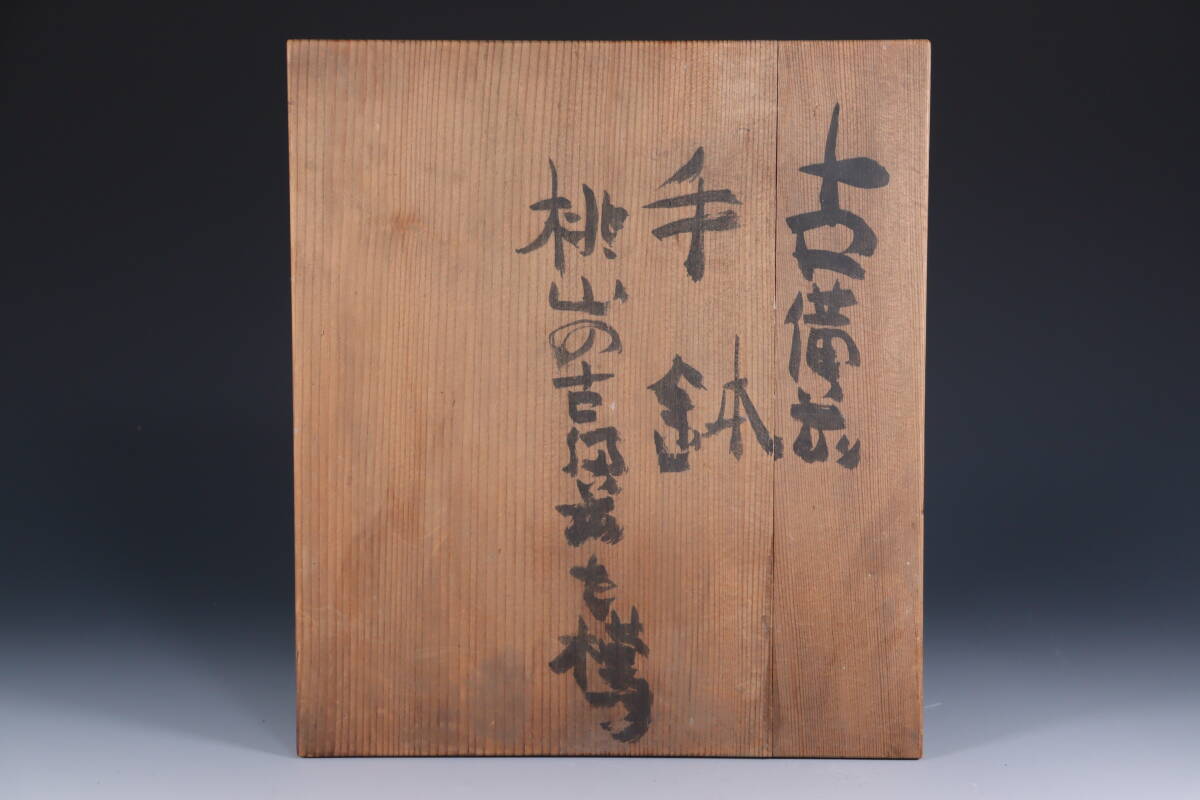 古備前
手鉢
桃山の古備前を模す